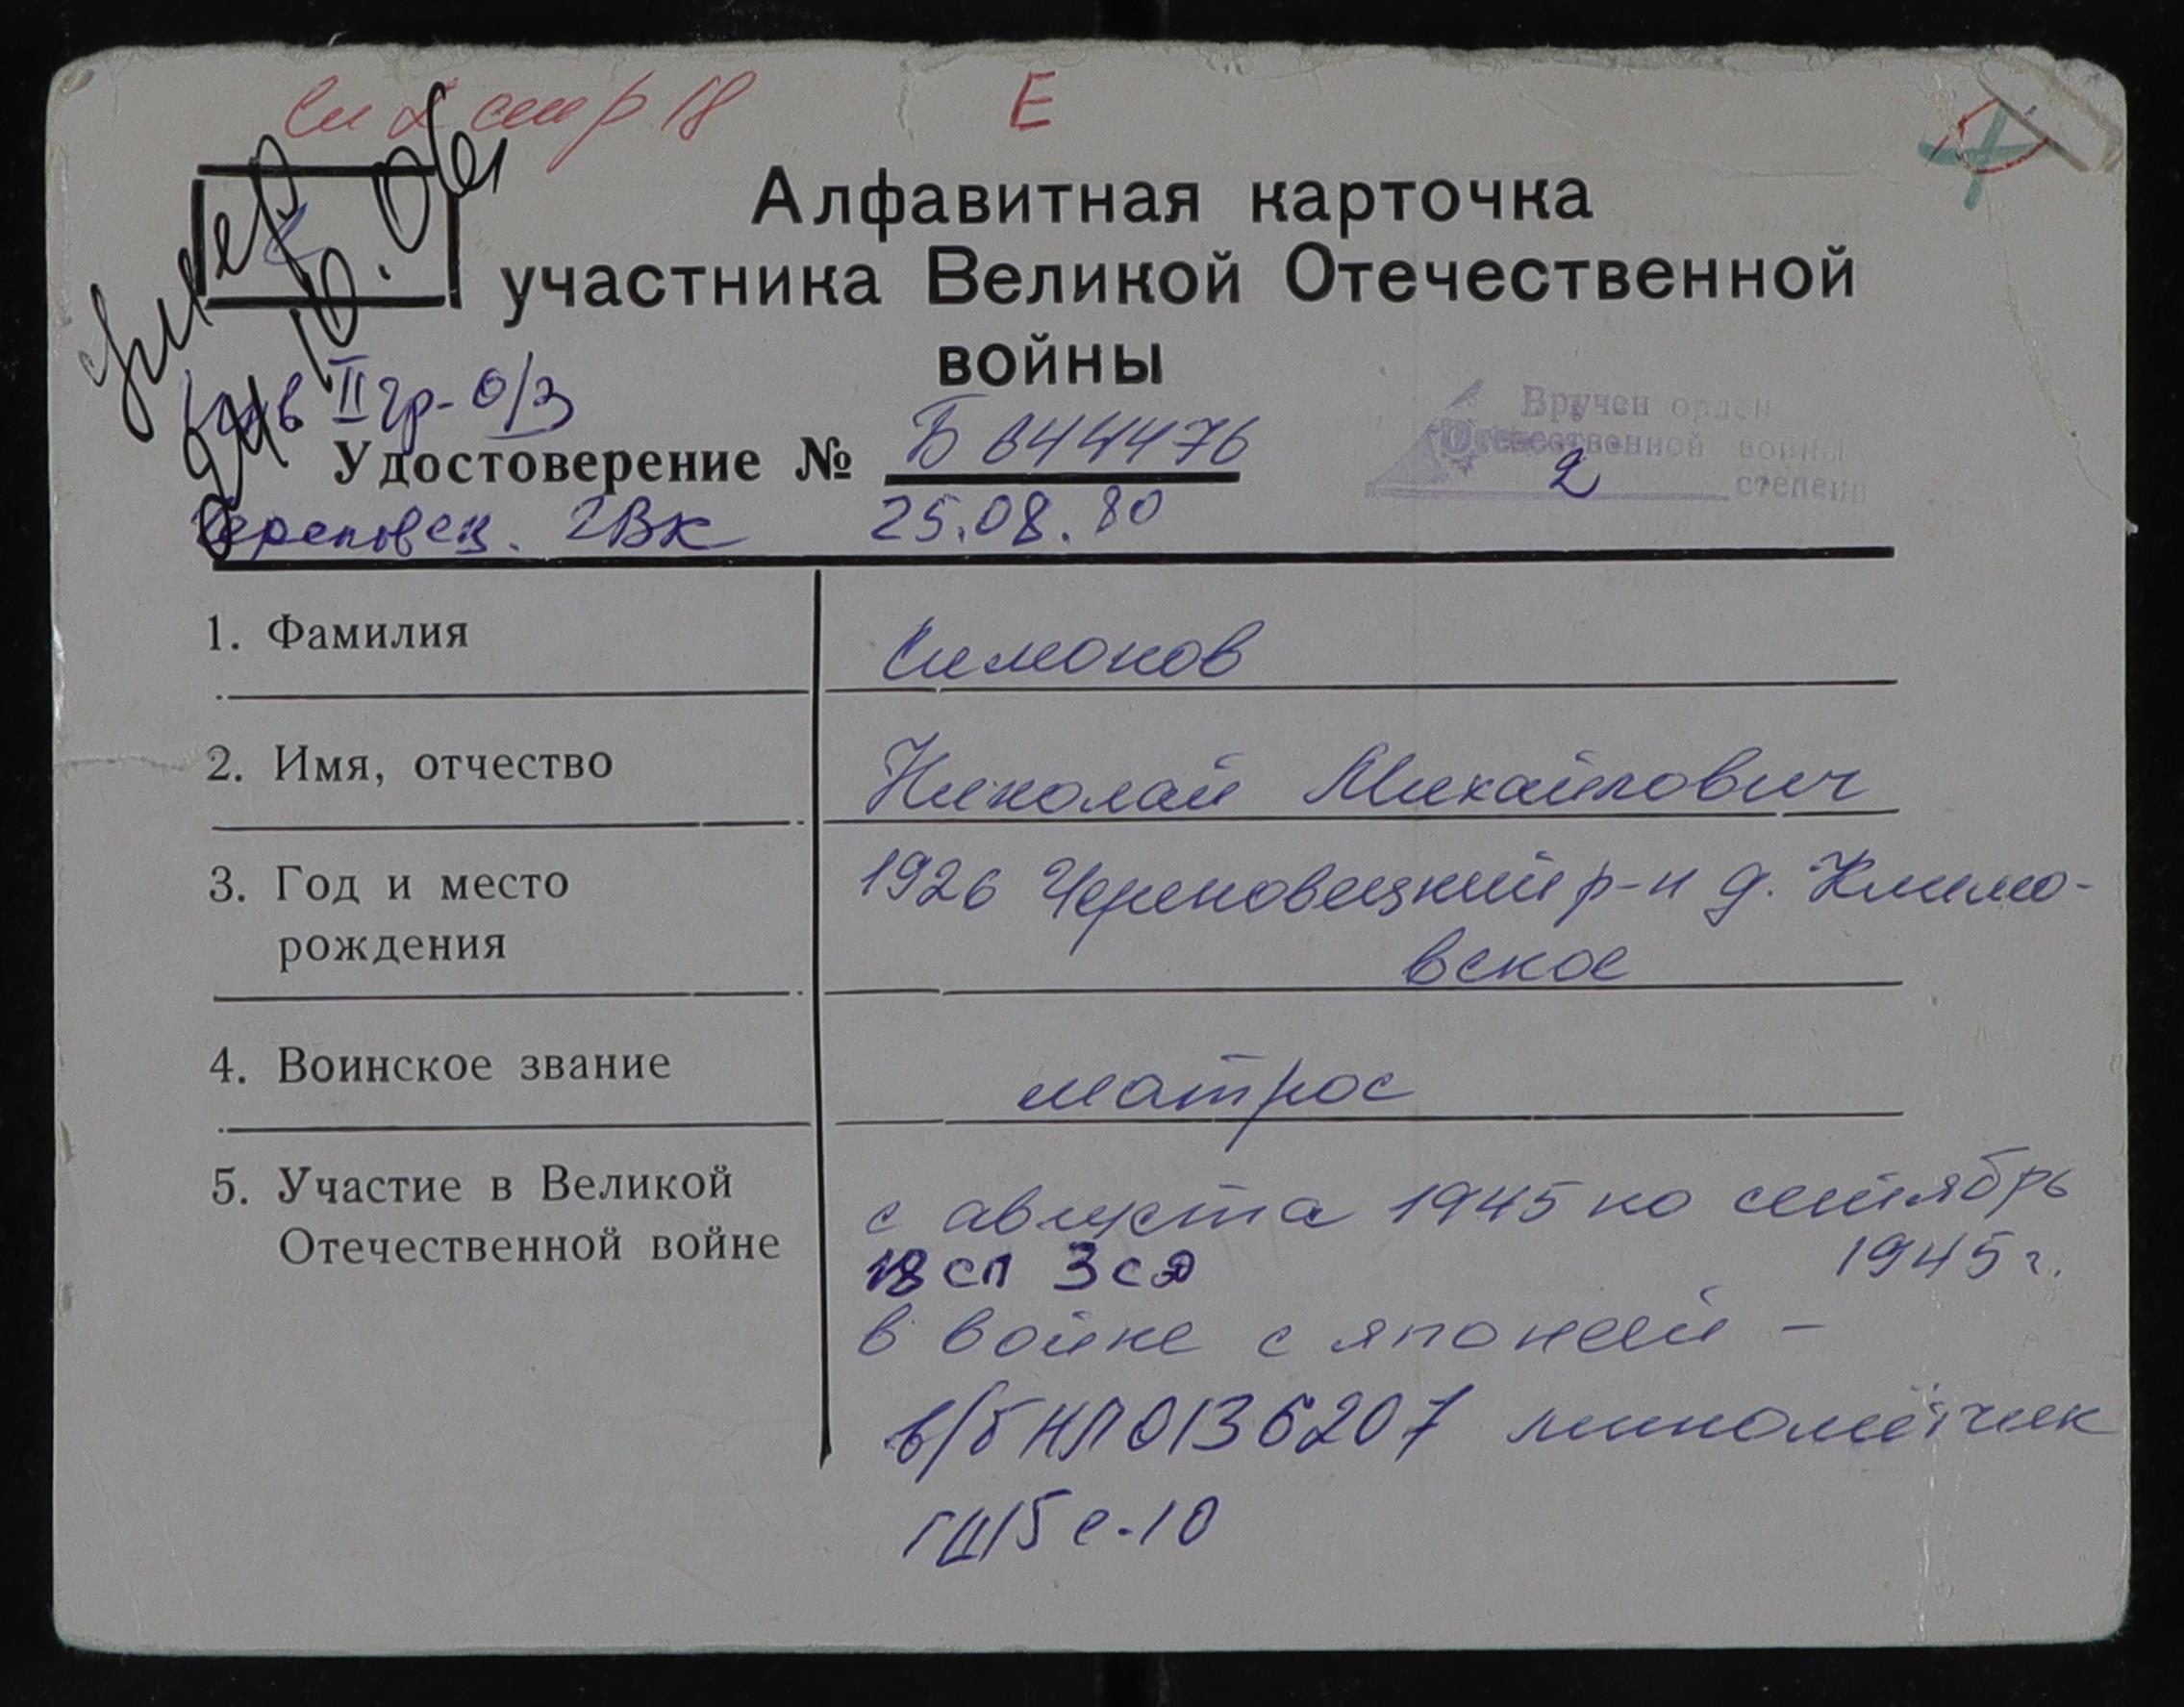 См 2 стр 18 Е
умер
24.10.01
Инв II гр- о/з
Алфавитная карточка
участника Великой Отечественной
войны
Вручен орден
Отечественной войны
2 степени
Удостоверение № Б 644476
Череповец. ГВК 25.08.80
1. Фамилия Симонов
2. Имя, отчество Николай Михайлович
3. Год и место 1926 Череповецкий р-н д. Климо-
рождения вское
4. Воинское звание матрос
5. Участие в Великой с августа 1945 по сентябрь
Отечественной войне 18 сп 3 сд 1945 г.
в войне с японей -
в/б НЛ 0136207 минометчик
с-10